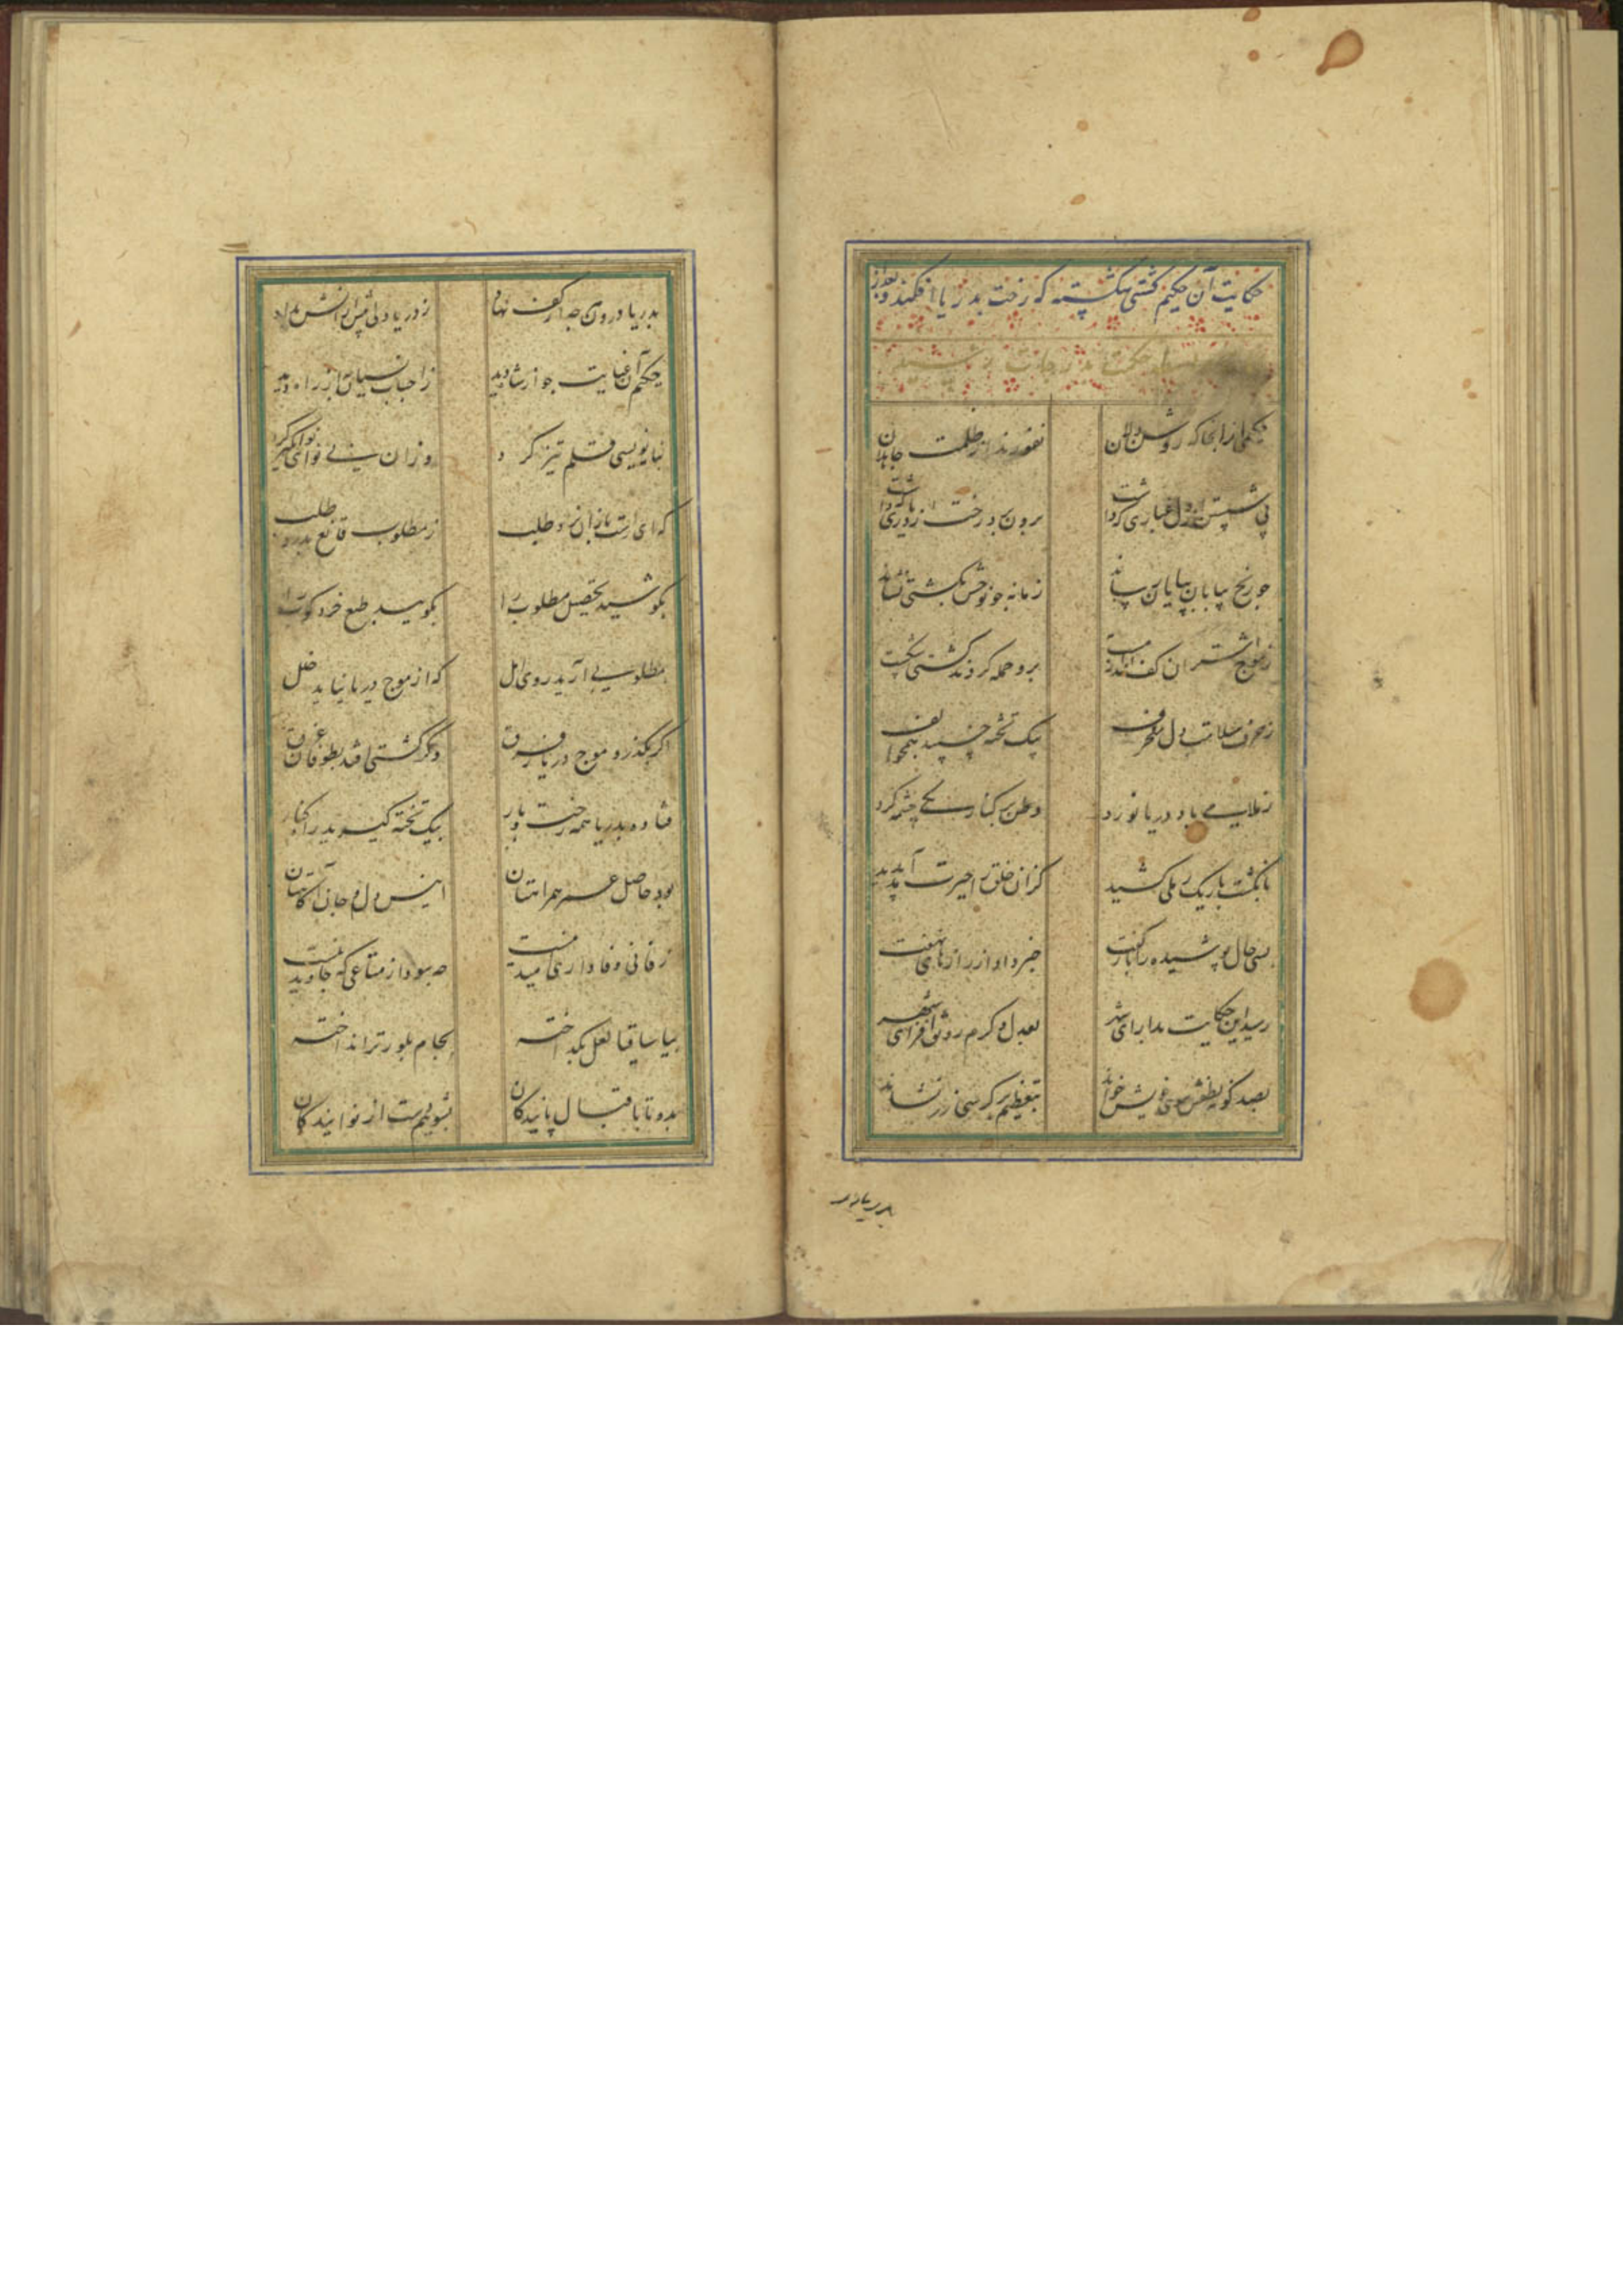 حکایت آن حکیم کشتی شکسته که رخت بدریا افکند و بعد از
حکمت بدرجات رسید
حکیمی از آنجا که روشن دلان نفورند از ظلمت جاهلان
پی شستن از دل غباری که داشت برون برد رخت از دیاری که داشت
چو رنج بیابان بپایان رساند زمانه چو نوحش بکشتی نشاند
ز موج اشتران کف انداز مست برو حمله کردند کشتی شکست
ز حرف سلامت دل منحرف بیک تخته چسپید همچو الف
ز غلابی باد دریا نورد وطن بر کنار یکی چشمه کرد
بانگشت باریک رملی کشید کزان خلق را حیرت آمد پدید
بسی حال پوشیده را باز گفت خبر داد از رازهای نهفت
رسید این حکایت بدارای شهر بعدل و کرم رونق افزای شهر
بصد گونه لطفش سوی خویش خواند بتعظیم بر کرسی زر نشاند
بدریا درو
بدریا درون هر چه از کف نهاد ز دریا دلی بیش از آنش بداد
حکیم آن عنایت چو از شاه دید ز احباب نسیان نه از راه دید
نبایه نویسی قلم تیز کرد وزان نی نوای
که ای راست بازان نرد طلب ز مطلوب قانع بدرد طلب
بکوشید تحصیل مطلوب را بکوبید طبع خرد کوب را
بمطلوبی آرید روی امل که از موج دریا نیابد خلل
اگر بگذرد موج دریا ز فرق وگر کشتی افتد بطوفان غرق
فتاده بدریا همه رخت و بار بیک تخته گیرید راه کنار
بود حاصل عمر همراهتان انیس دل و جان آگاهتان
ز فانی وفاداری امید نیست چه سود از متاعی که جاوید نیست
بیا ساقیا لعل بگداخته بجام بلور تر انداخته
بده تا باقبال پایندگان بشوییم دست از نوایندگان